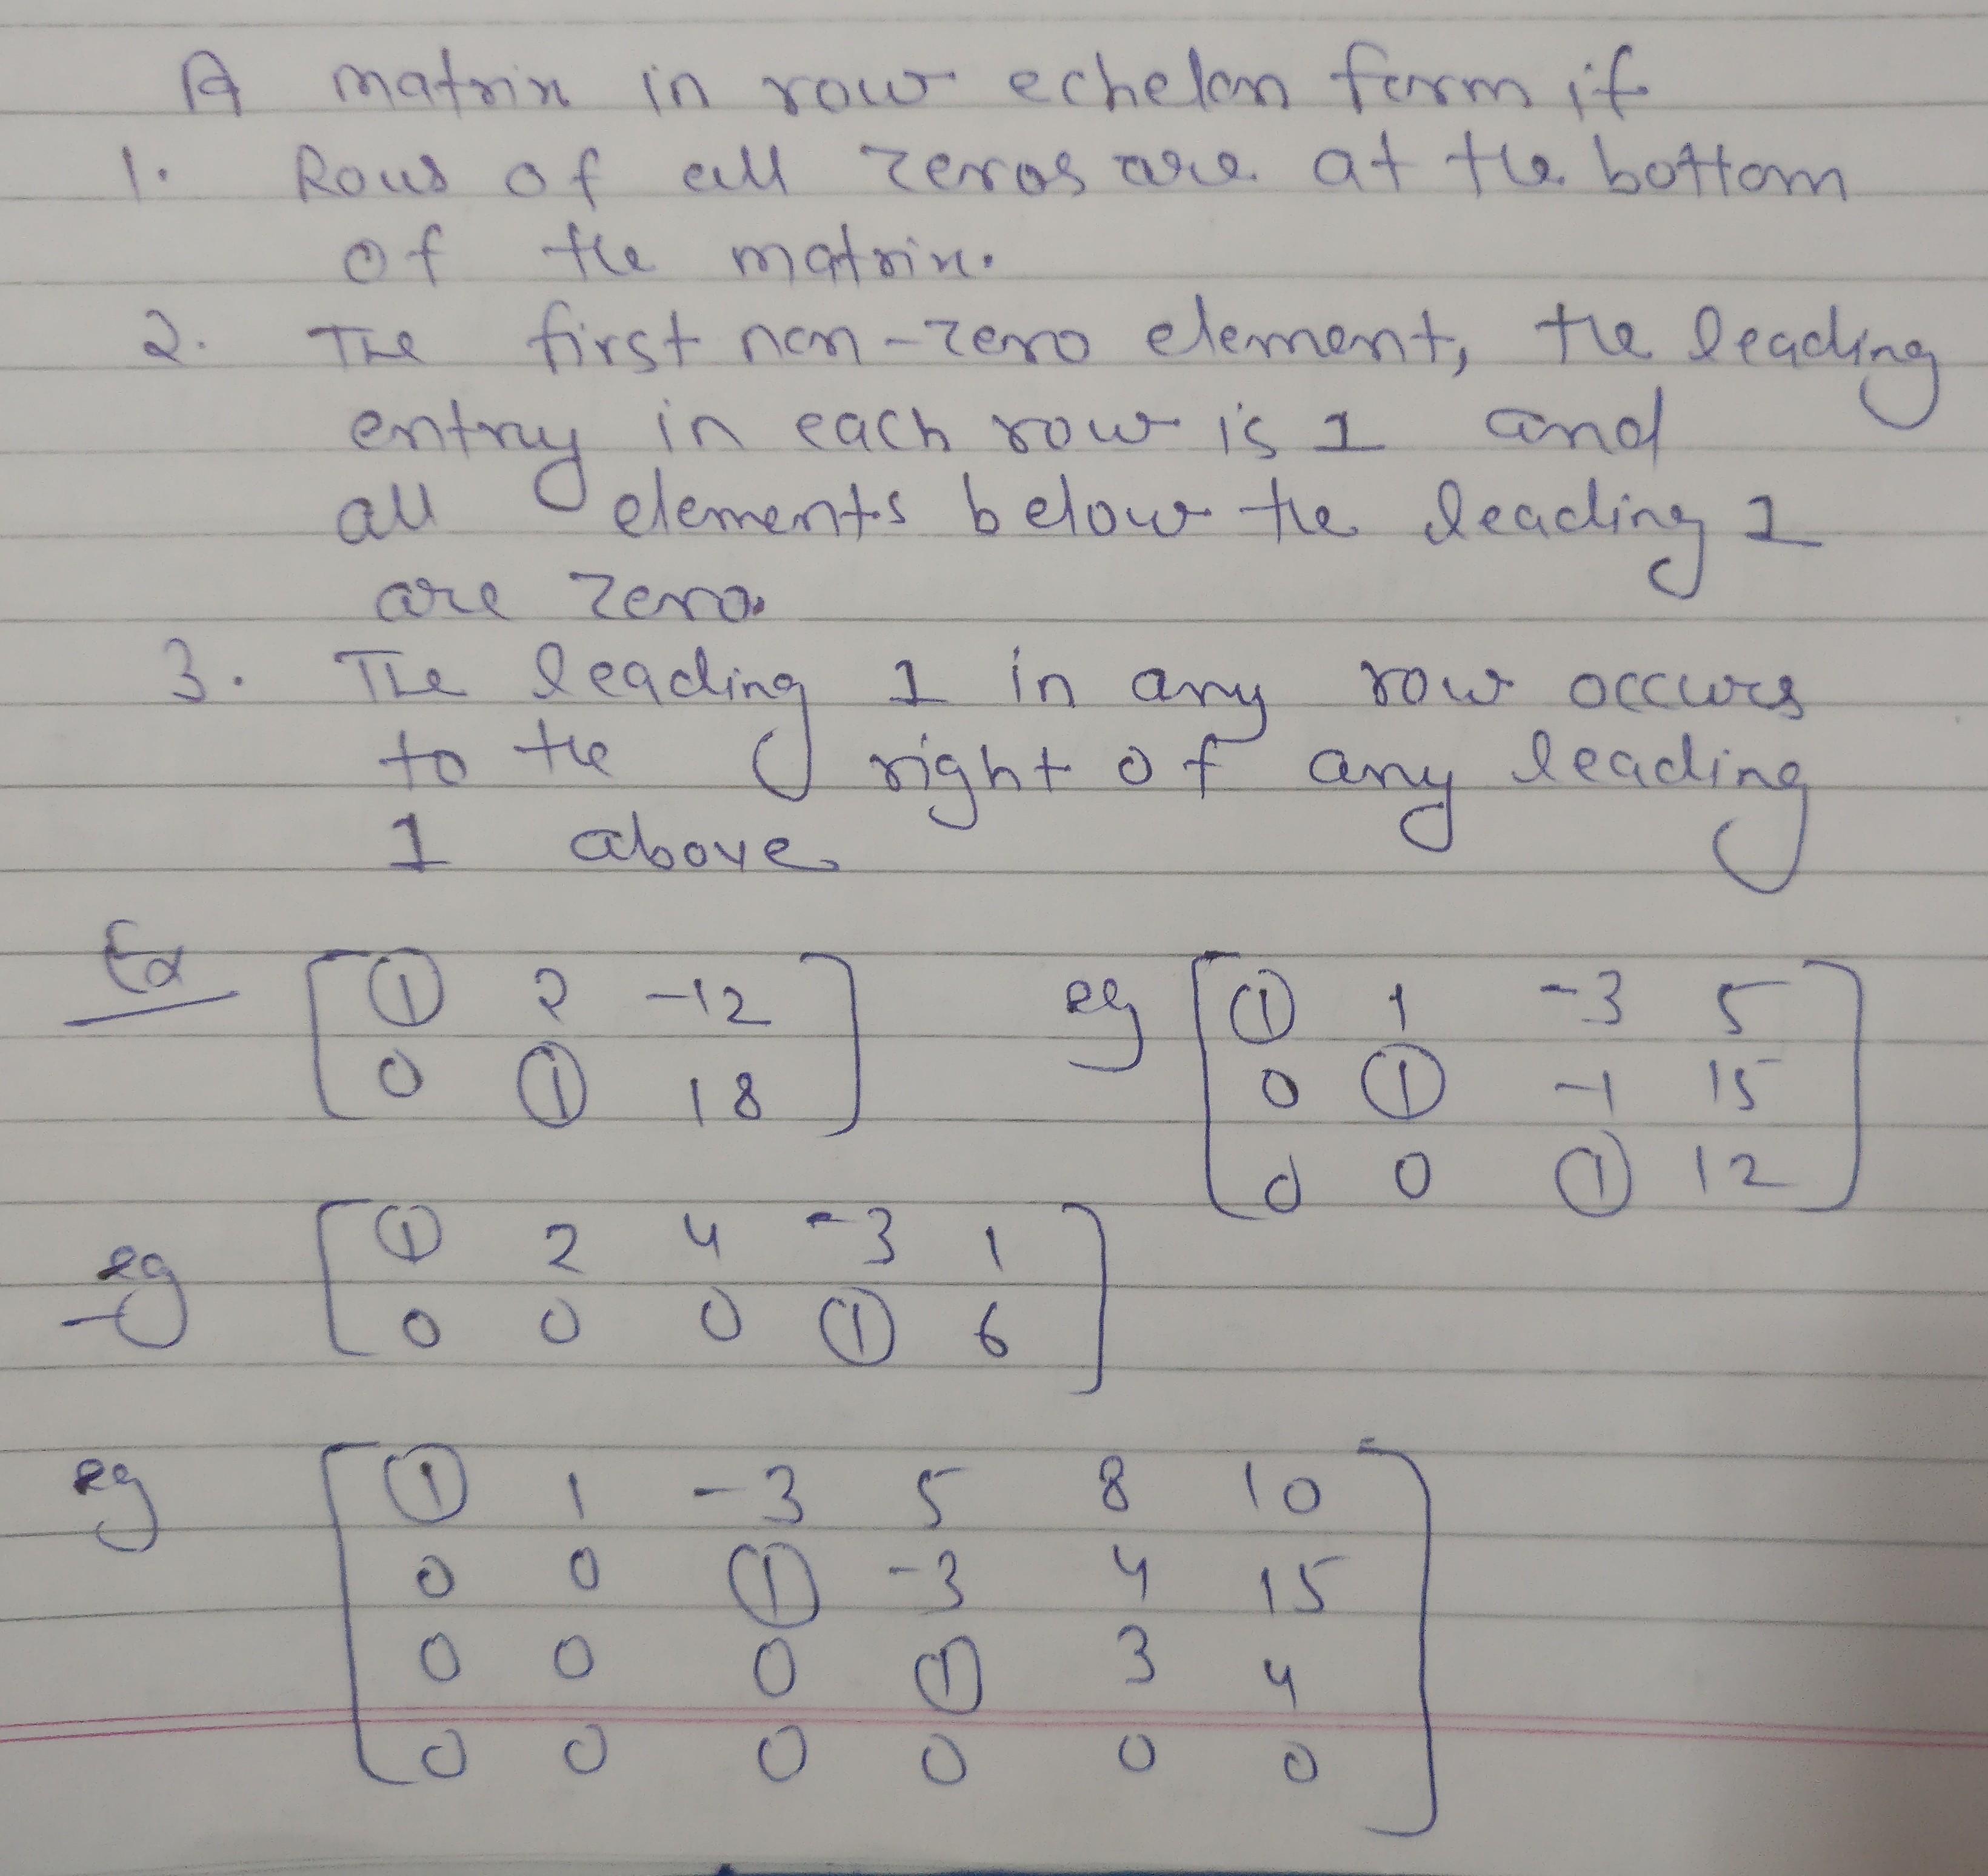 A matrix in row echelon form if
1. Rows of all zeros are at the bottom
of the matrix.
2. The first non-zero element, the leading
entry in each row is 1 and
all elements below the leading 1
are zero.
3. The leading 1 in any row occurs
to the right of any leading
1 above.
Ex [ 1 2 -12
0 1 18 ]
eg [ 1 1 -3 5
0 1 -1 15
0 0 1 12 ]
eg [ 1 2 4 -3 1
0 0 0 1 6 ]
eg [ 1 1 -3 5 8 10
0 0 1 -3 4 15
0 0 0 1 3 4
0 0 0 0 0 0 ]